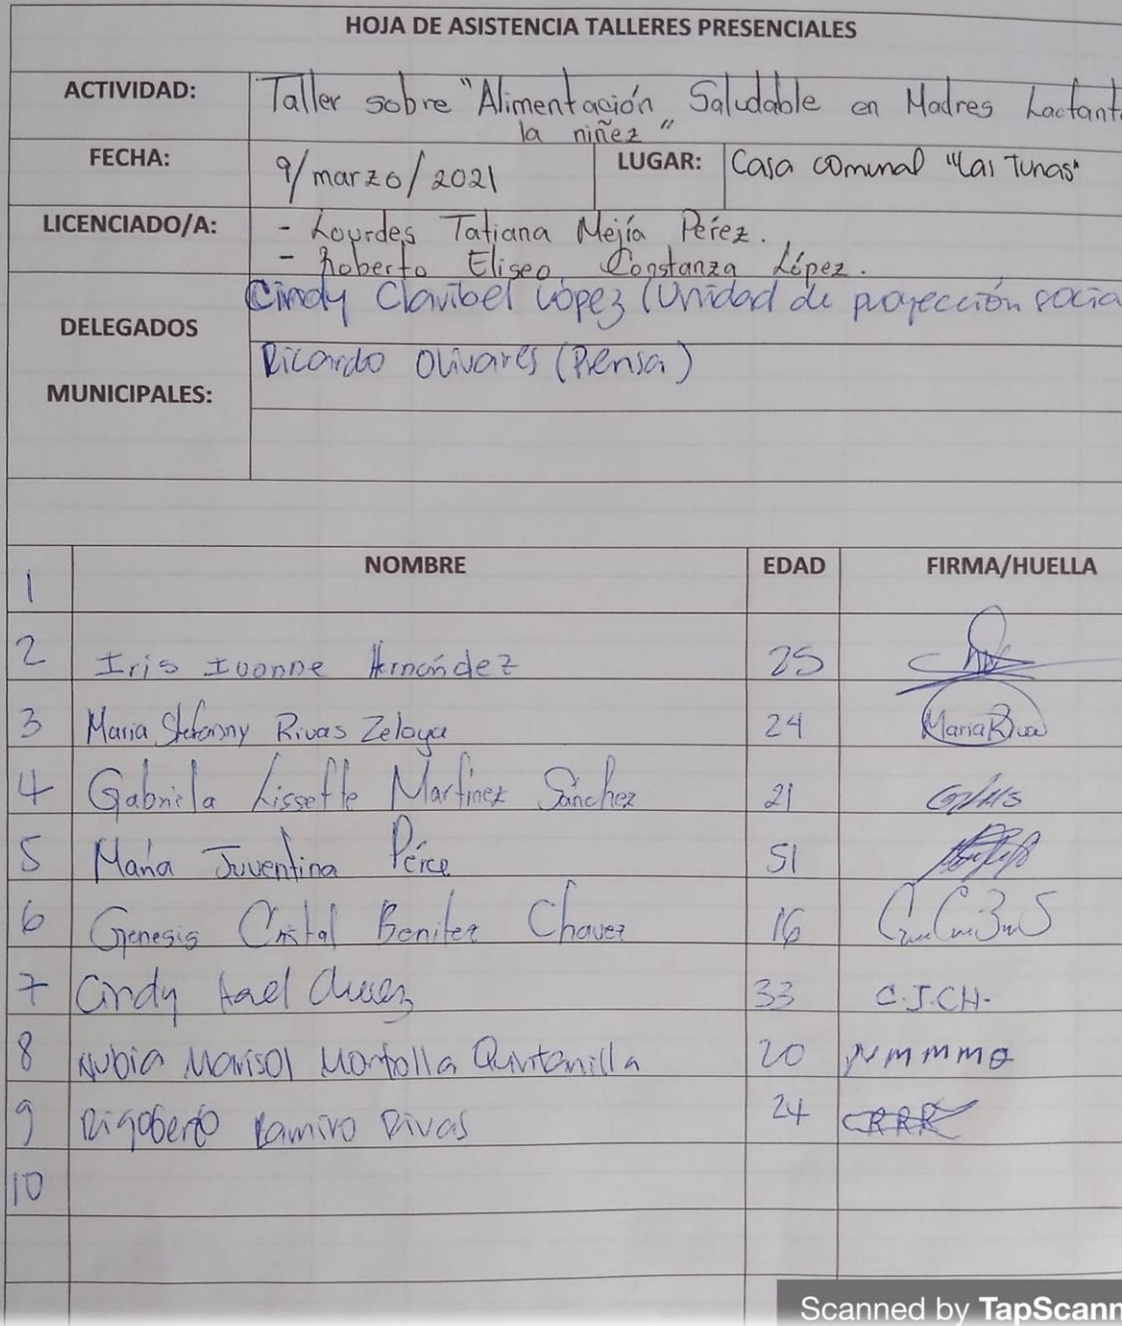 HOJA DE ASISTENCIA TALLERES PRESENCIALES
ACTIVIDAD: Taller sobre "Alimentación Saludable en Madres Lactant
la niñez"
FECHA: 9/marzo/2021 LUGAR: Casa comunal "Las Tunas"
LICENCIADO/A: - Lourdes Tatiana Mejía Pérez.
- Roberto Eliseo Constanza López.
DELEGADOS MUNICIPALES: Cindy Claribel López (Unidad de proyección socia
Ricardo Olivares (Prensa)
1 NOMBRE EDAD FIRMA/HUELLA
2 Iris Ivonne Hernández 25
3 Maria Stefanny Rivas Zelaya 24 Maria Riva
4 Gabriela Lissette Martinez Sánchez 21
5 María Juventina Pérez 51
6 Genesis Cristal Benitez Chavez 16
7 Cindy 33 C.J.CH.
8 Nubia Marisol Quintanilla 20
9 Rigoberto Ramiro Rivas 24 RRR
10
Scanned by TapScann